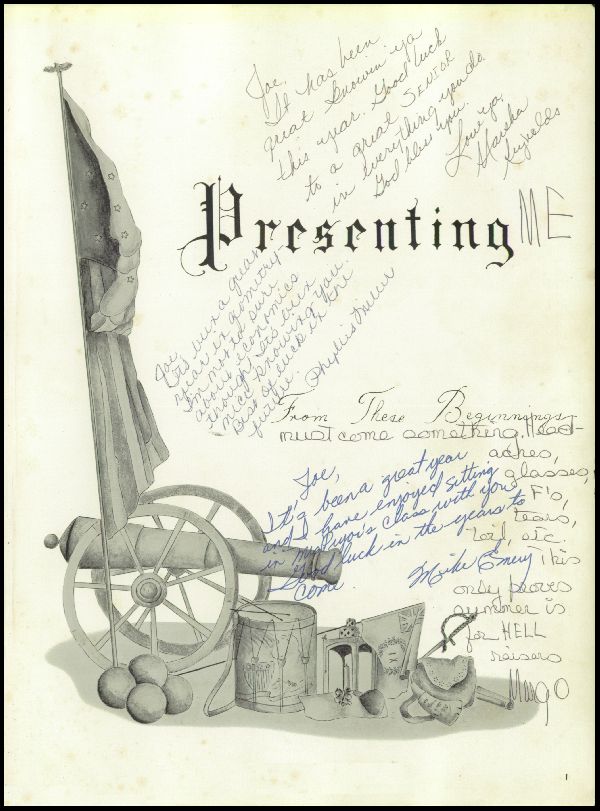 Joe,
It has been
great knowin' ya
this year. Good luck
to a great SENIOR
in everything you do.
God bless you.
Love ya,
Marsha
Reynolds
Presenting ME
Joe,
It's been a great
year in geometry
I'm not so sure
about economics
though. It's been
nice knowing you.
Best of luck in the
future. Phyllis
From These Beginnings
must come something. Head-
aches,
glasses,
F's,
tears,
toil, etc.
This
only proves
summer is
for HELL
raisers
Margo
Joe,
It's been a great year
and I have enjoyed sitting
in class with you
Good luck in the years to
come. Mike Emery
1